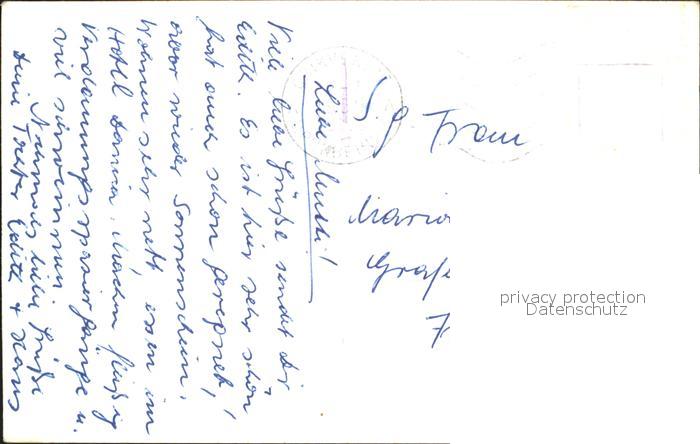 Liebe Mutti!
Viele liebe Grüße sendet dir
Edith. Es ist hier sehr schön
hat auch schon geregnet,
aber wieder Sonnenschein.
Wohnen sehr nett essen im
Hotel Danica. Machen fleißig
Verdauungsspaziergänge u.
viel schwimmen.
Nochmals liebe Grüße
Deine Tochter Edith + Hans
S. g. Frau
Maria
Graf
7
privacy protection
Datenschutz